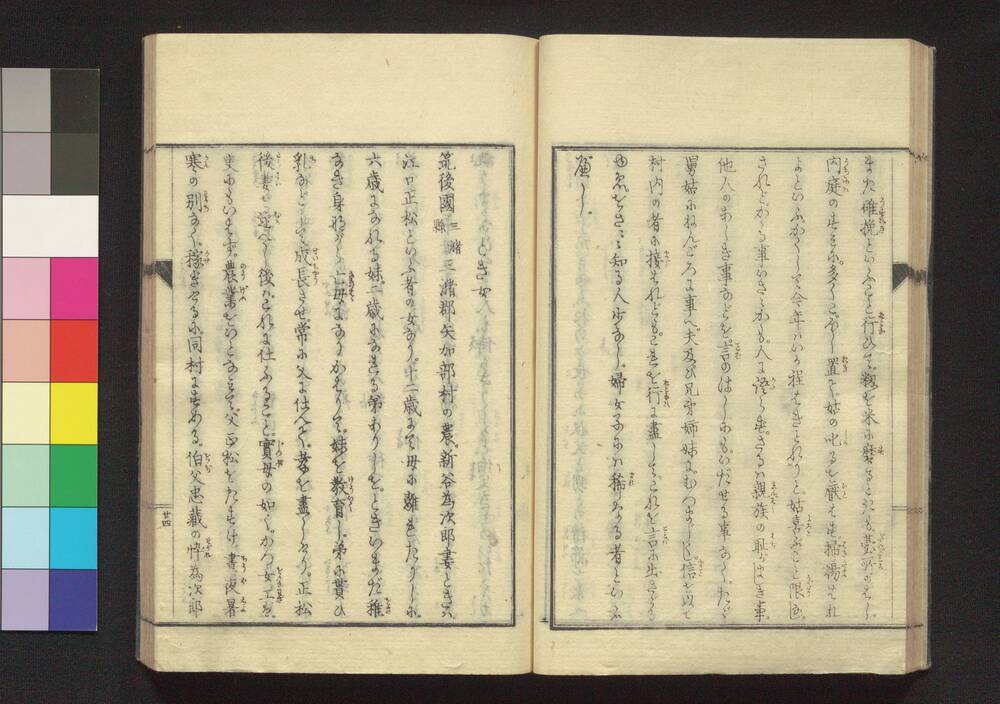 また碓挽といふことを行ひて籾を米に磨るときも基
内庭のすみに多くこぼし置を姑の叱るを厭はず掃蕩すれ
よといふかくして今年はいか程はきとれりと姑喜ぶこと限な
されどかゝる事いさゝかも人に語らずさるは親族の恥がはしき事
他人のあしき事などを言のはしにもいだせる事なくたゞ
舅姑にねんごろに事へ夫及び兄弟姉妹にむつましく信を以て
村内の者に接はれどもこれを行に盡してこれを言に出さゞる
ゆゑをさゝゝ知る人少なし婦女子には稀なる者といふ
べし
とき女
筑後國三潴縣三潴郡矢加部村の農新谷為次郎妻ときハ
江口正松といふ者の女なり十二歳にて母に離れたりしに
六歳になれる妹二歳になれる弟ありしをときいまだ稚
なき身ながら亡母になりかはりて妹を教育し弟に貰ひ
乳などして成長させ常に父に仕へて孝を盡しけり正松
後妻を迎へし後ハこれに仕ふること實母の如くかつ女工ハ
更にもいはず農業をいとなみて父正松をたすけ晝夜暑
寒の別なく稼ぎけるに同村にすめる伯父忠藏の悴為次郎
廿四